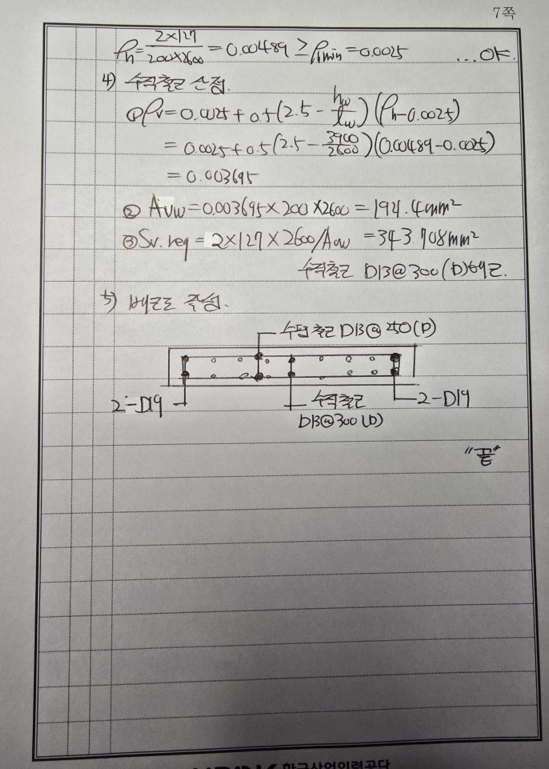 7쪽
ρh = 2×127/200×2600 = 0.00489 ≥ ρmin = 0.0025 ...OK.
4) 수직철근 산정.
① ρv = 0.0025 + 0.5(2.5 - hw/lw)(ρh - 0.0025)
= 0.0025 + 0.5(2.5 - 3900/2600)(0.00489 - 0.0025)
= 0.003695
② Avw = 0.003695 × 200 × 2600 = 192.4mm²
③ Sv.req = 2×127×2600/Avw = 343.708mm²
수직철근 D13@300(D)배근.
5) 배근도 작성.
수평철근 D13@250(D)
2-D19
수직철근
D13@300(D)
2-D19
"끝"
한국산업인력공단